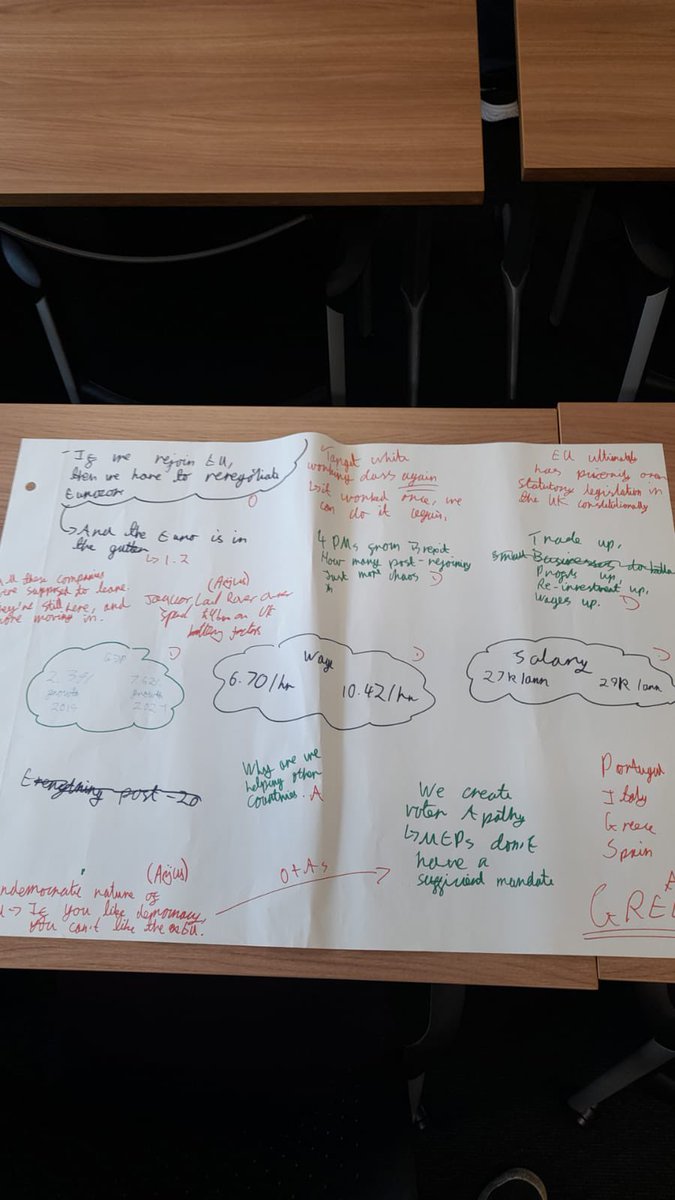 - If we rejoin EU,
then we have to renegotiate
↳ And the Euro is in
the gutter
↳ 1.2
Target white
working class again
↳ it worked once, we
can do it again.
EU ultimately
has over
statutory legislation in
the UK constitutionally
4 PMs from Brexit.
How many post-rejoining
Just more chaos D
Trade up,
small Businesses
Profits up,
Re-investment up,
Wages up. D
all these companies
were supposed to leave.
They're still here, and
more moving in.
(Arjus)
Land Rover
spend £4bn on UK
battery
GDP
growth
growth
2019
D
Wage
6.70/hr
10.42/hr
D
Salary
27K/ann
29K/ann
D
Everything post-20
Why are we
helping other
countries. A
We create
voter Apathy
↳ MEPs don't
have a
sufficient mandate
Portugal
Italy
Greece
Spain
(Arjus)
undemocratic nature of
→ If you like democracy,
you can't like the EU.
O + A s
A
GRE